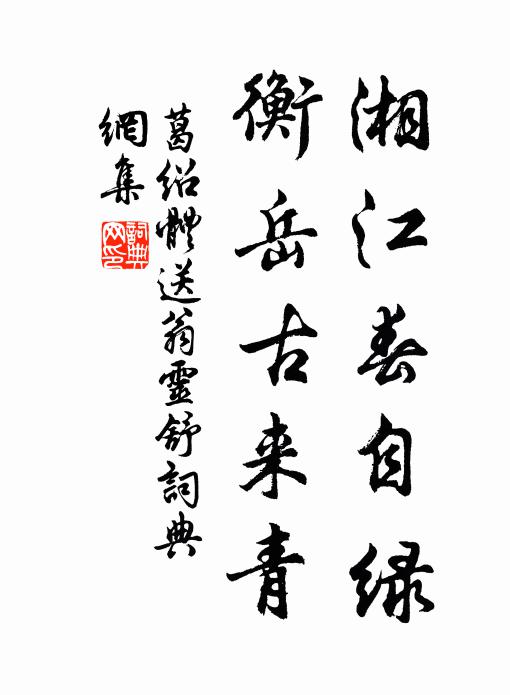 湘江春自绿
衡岳古来青
葛绍體送翁靈舒詞典
網集
詞典
网印